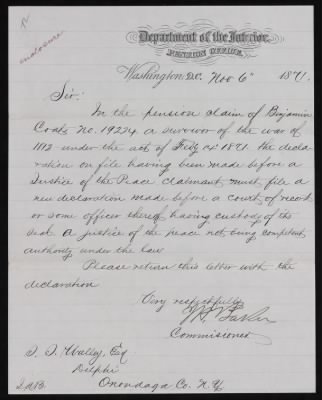 enclosure
Department of the Interior,
PENSION OFFICE,
Washington D.C. Nov 6" 1871.
Sir:
In the pension claim of Benjamin
No. 19224, a survivor of the war of
1812 under the act of Feb'y 14" 1871 the decla-
ration on file having been made before a
Justice of the Peace claimant must file a
new declaration made before a court of record
or some officer thereof having custody of the
seal a justice of the peace not being competent
authority under the law
Please return this letter with the
declaration
Very respectfully
Baker
Commissioner
Esq
Delphi
Onondaga Co. N.Y.